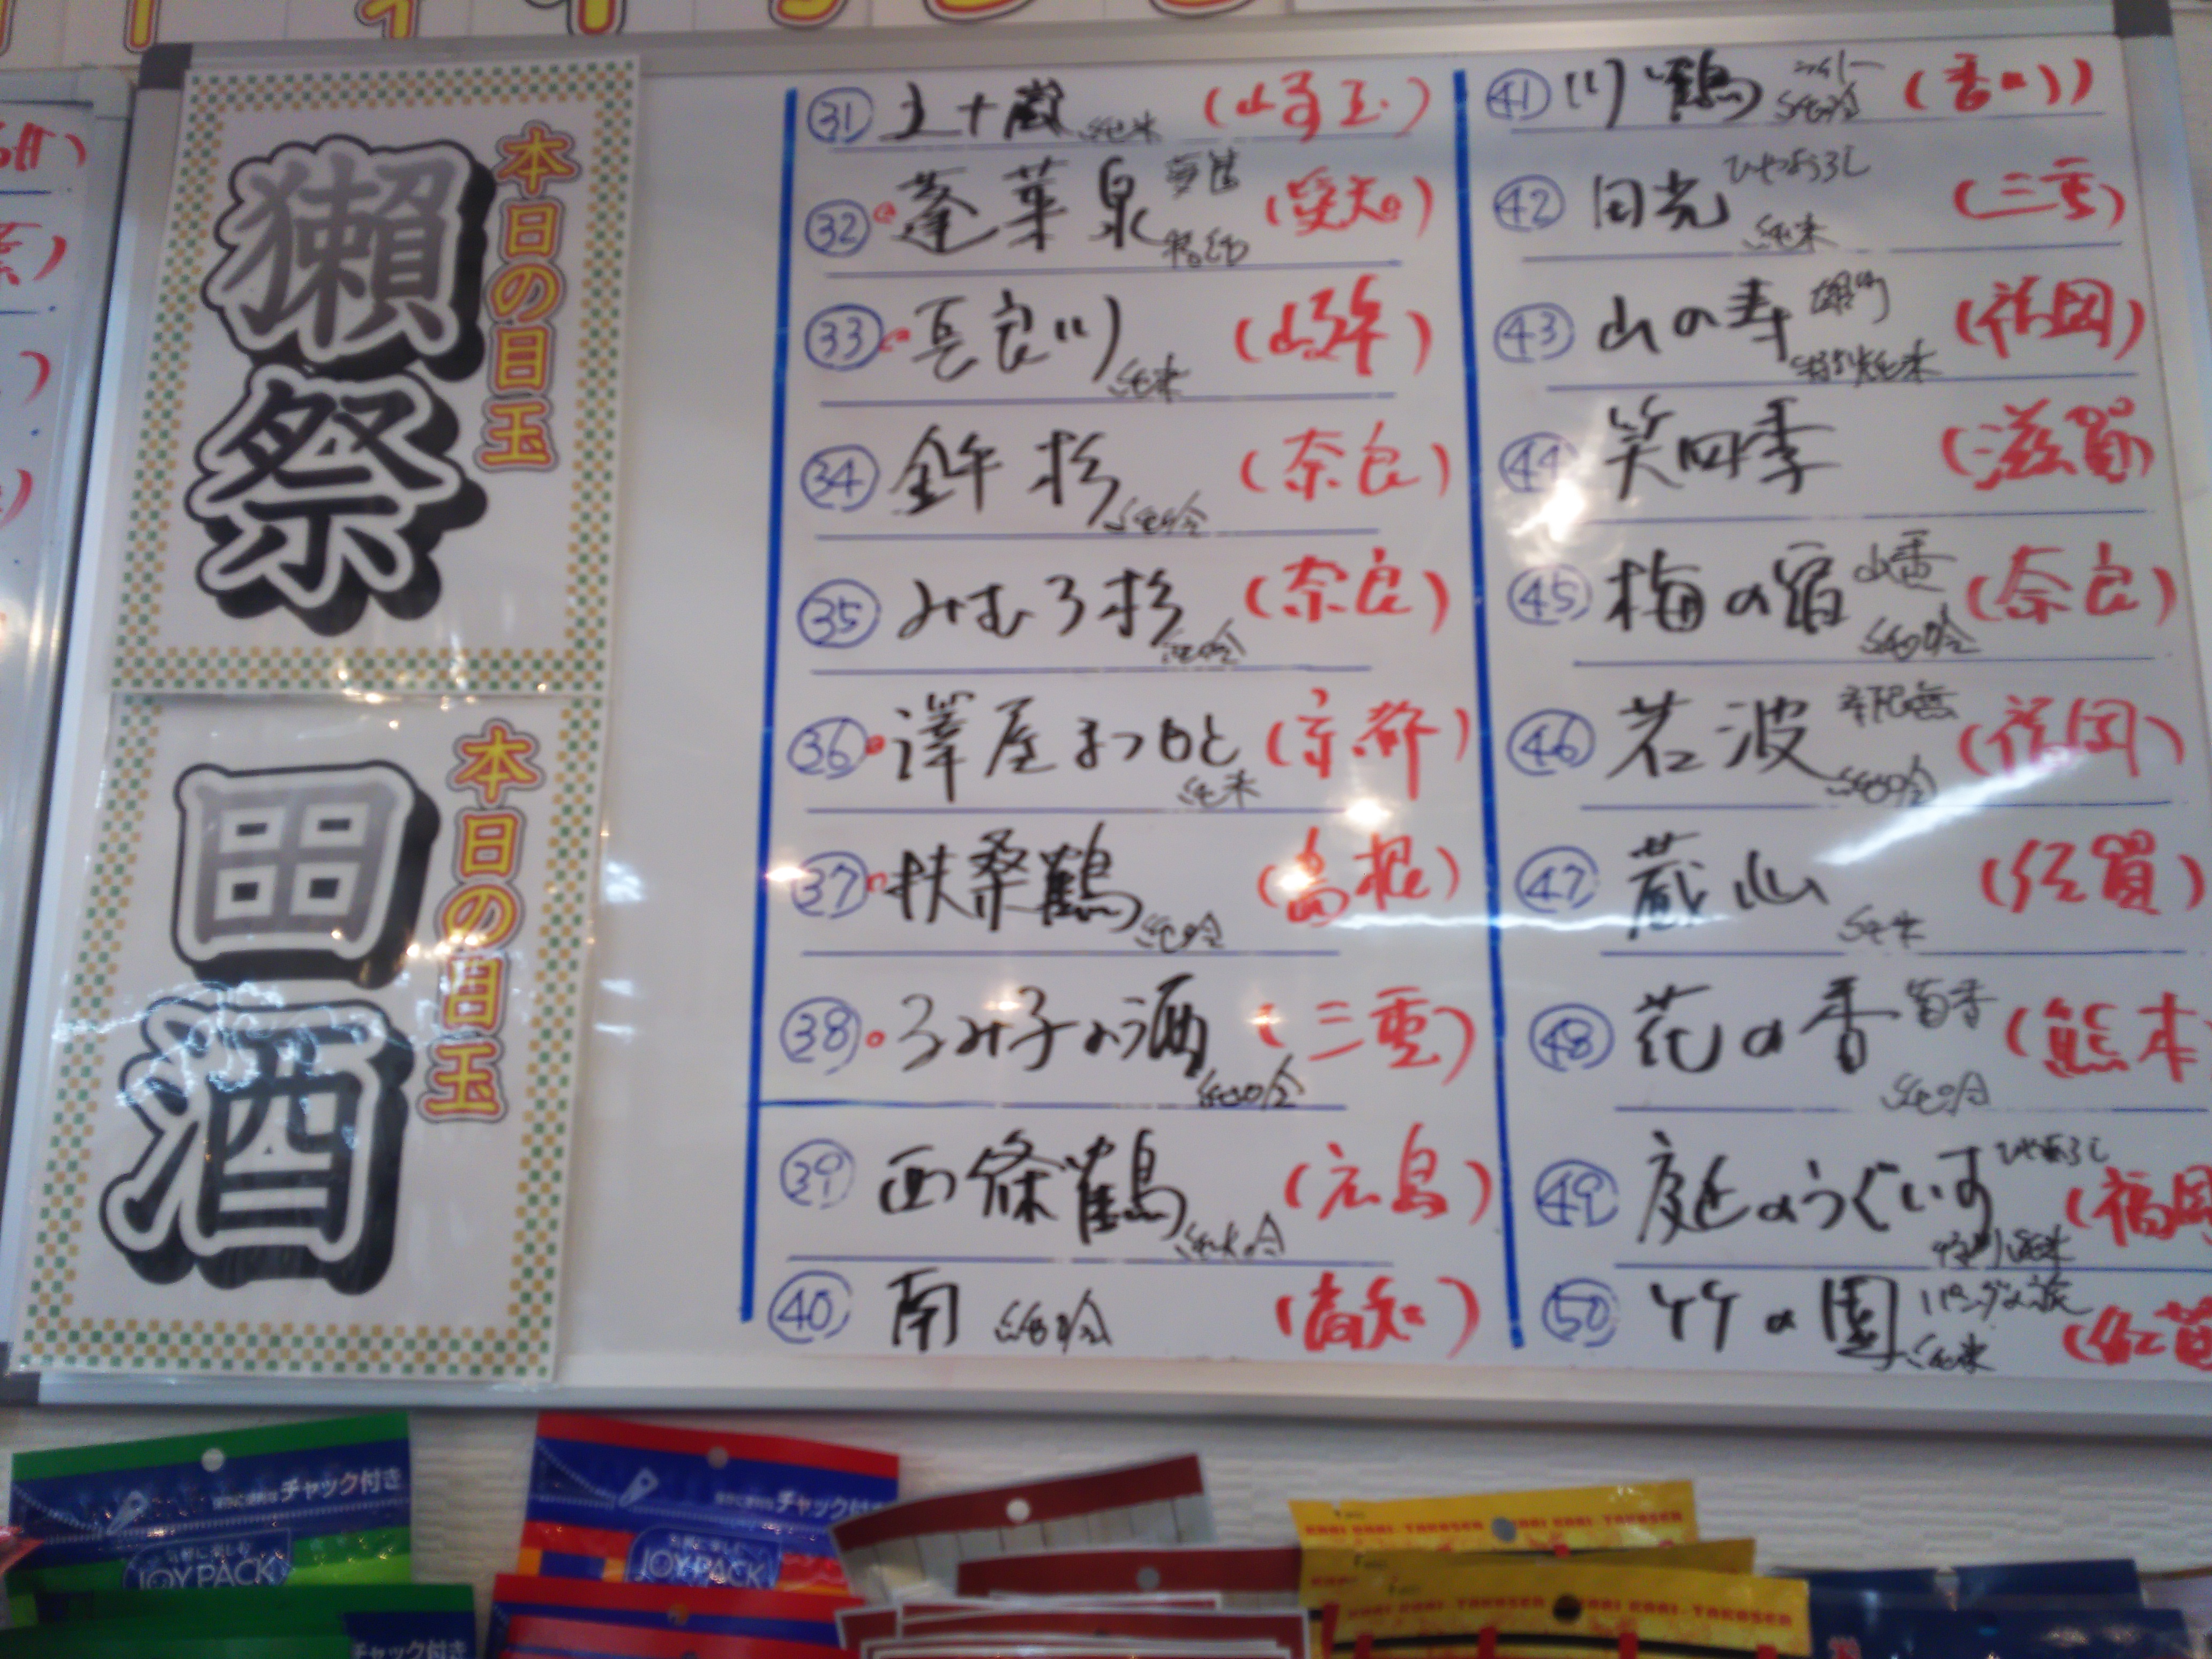 本日の目玉
獺祭
本日の目玉
田酒
㉛ 五十嵐 純米 (埼玉)
㉜ 蓬莱泉 特純 (愛知)
㉝ 長良川 純米 (岐阜)
㉞ 鉾杉 純吟 (奈良)
㉟ みむろ杉 純吟 (奈良)
㊱ 澤屋まつもと 純米 (京都)
㊲ 扶桑鶴 純吟 (島根)
㊳ るみ子の酒 純吟 (三重)
㊴ 西條鶴 純大吟 (広島)
㊵ 南 純吟 (高知)
㊶ 川鶴 純吟 (香川)
㊷ 田光 ひやおろし 純米 (三重)
㊸ 山の寿 雄町 特別純米 (福岡)
㊹ 笑四季 (滋賀)
㊺ 梅の宿 山香 純吟 (奈良)
㊻ 若波 純吟 (福岡)
㊼ 蔵心 純米 (佐賀)
㊽ 花の香 菊香 純吟 (熊本
㊾ 庭のうぐいす ひやおろし 特別純米 (福岡
㊿ 竹の園 パンダの旅 純米 (佐賀
チャック付き
JOY PACK
チャック付き
JOY PACK
KARI KARI-TAKOSEN
KARI KARI-TAKOSEN
チャック付き